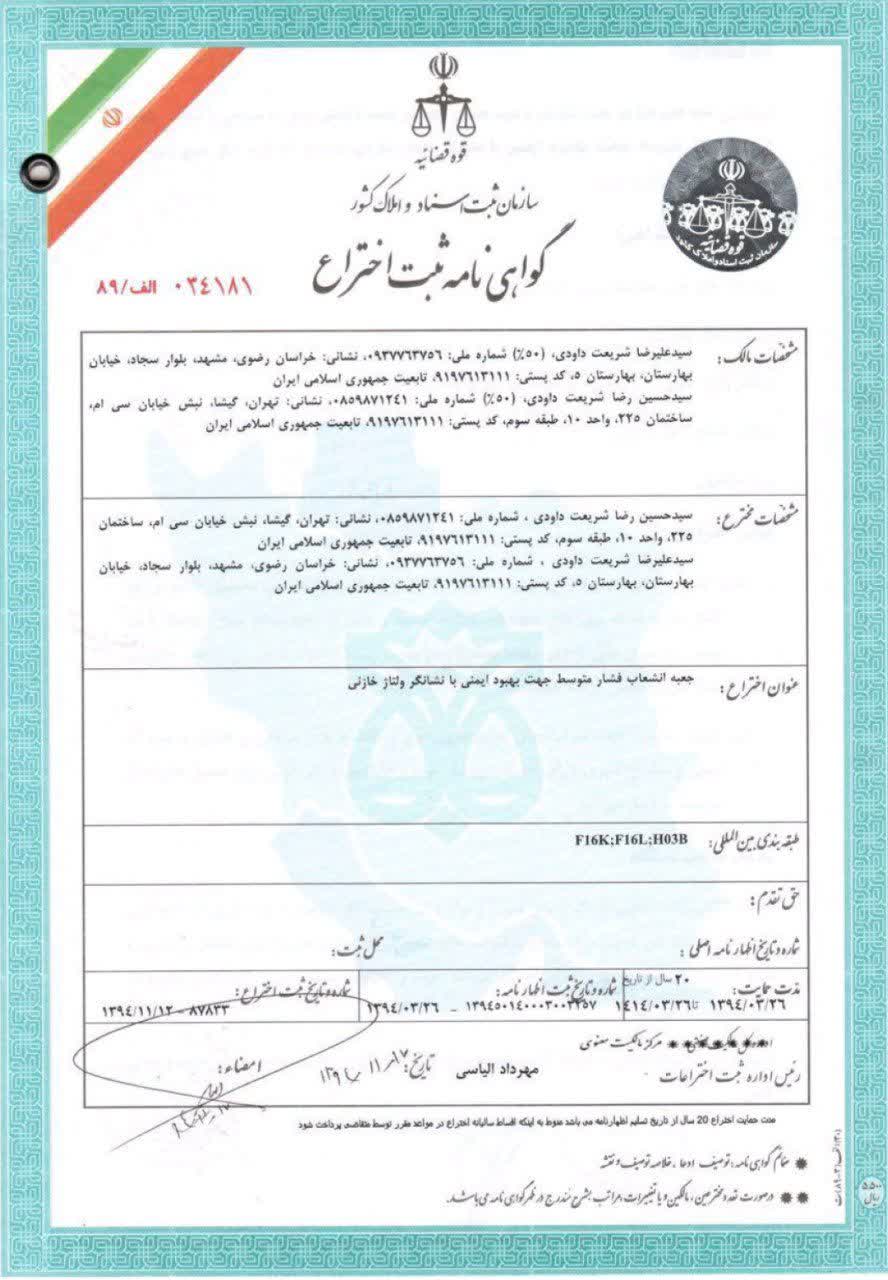 قوه قضائیه
سازمان ثبت اسناد و املاک کشور
گواهی نامه ثبت اختراع
۰۳٤۱۸۱ الف/۸۹
قوه قضائیه
سازمان ثبت اسناد و املاک کشور
مشخصات مالک:
سیدعلیرضا شریعت داودی، (۵۰٪) شماره ملی: ۰۹۳۷۷٦۳۷۵٦، نشانی: خراسان رضوی، مشهد، بلوار سجاد، خیابان
بهارستان، بهارستان ۵، کد پستی: ۹۱۹۷٦۱۳۱۱۱، تابعیت جمهوری اسلامی ایران
سیدحسین رضا شریعت داودی، (۵۰٪) شماره ملی: ۰۸۵۹۸۷۱۲٤۱، نشانی: تهران، گیشا، نبش خیابان سی ام،
ساختمان ۲۲۵، واحد ۱۰، طبقه سوم، کد پستی: ۹۱۹۷٦۱۳۱۱۱، تابعیت جمهوری اسلامی ایران
مشخصات مخترع:
سیدحسین رضا شریعت داودی ، شماره ملی: ۰۸۵۹۸۷۱۲٤۱، نشانی: تهران، گیشا، نبش خیابان سی ام، ساختمان
۲۲۵، واحد ۱۰، طبقه سوم، کد پستی: ۹۱۹۷٦۱۳۱۱۱، تابعیت جمهوری اسلامی ایران
سیدعلیرضا شریعت داودی ، شماره ملی: ۰۹۳۷۷٦۳۷۵٦، نشانی: خراسان رضوی، مشهد، بلوار سجاد، خیابان
بهارستان، بهارستان ۵، کد پستی: ۹۱۹۷٦۱۳۱۱۱، تابعیت جمهوری اسلامی ایران
عنوان اختراع:
جعبه انشعاب فشار متوسط جهت بهبود ایمنی با نشانگر ولتاژ خازنی
طبقه بندی بین المللی: F16K;F16L;H03B
حق تقدم:
شماره و تاریخ اظهارنامه اصلی: محل ثبت:
مدت حمایت: ۲۰ سال از تاریخ
۱۳۹٤/۰۳/۲٦ تا ۱٤۱٤/۰۳/۲٦
شماره و تاریخ ثبت اظهارنامه:
۱۳۹٤۵۰۱٤۰۰۰۳۰۰۳۲۵۷ - ۱۳۹٤/۰۳/۲٦
شماره و تاریخ ثبت اختراع:
۸۷۸۳۳ - ۱۳۹٤/۱۱/۱۲
مرکز مالکیت معنوی
رئیس اداره ثبت اختراعات مهرداد الیاسی تاریخ: امضاء:
مدت حمایت اختراع 20 سال از تاریخ تسلیم اظهارنامه می باشد منوط به اینکه اقساط سالیانه اختراع در مواعد مقرر توسط متقاضی پرداخت شود
✸ ضمائم گواهی نامه: توصیف، ادعا، خلاصه توصیف و نقشه
✸ ✸ درصورت تعدد مخترعین، مالکین و یا تغییرات، مراتب بشرح مندرج در ظهر گواهی نامه می باشد.
۵۵۰۰
ریال